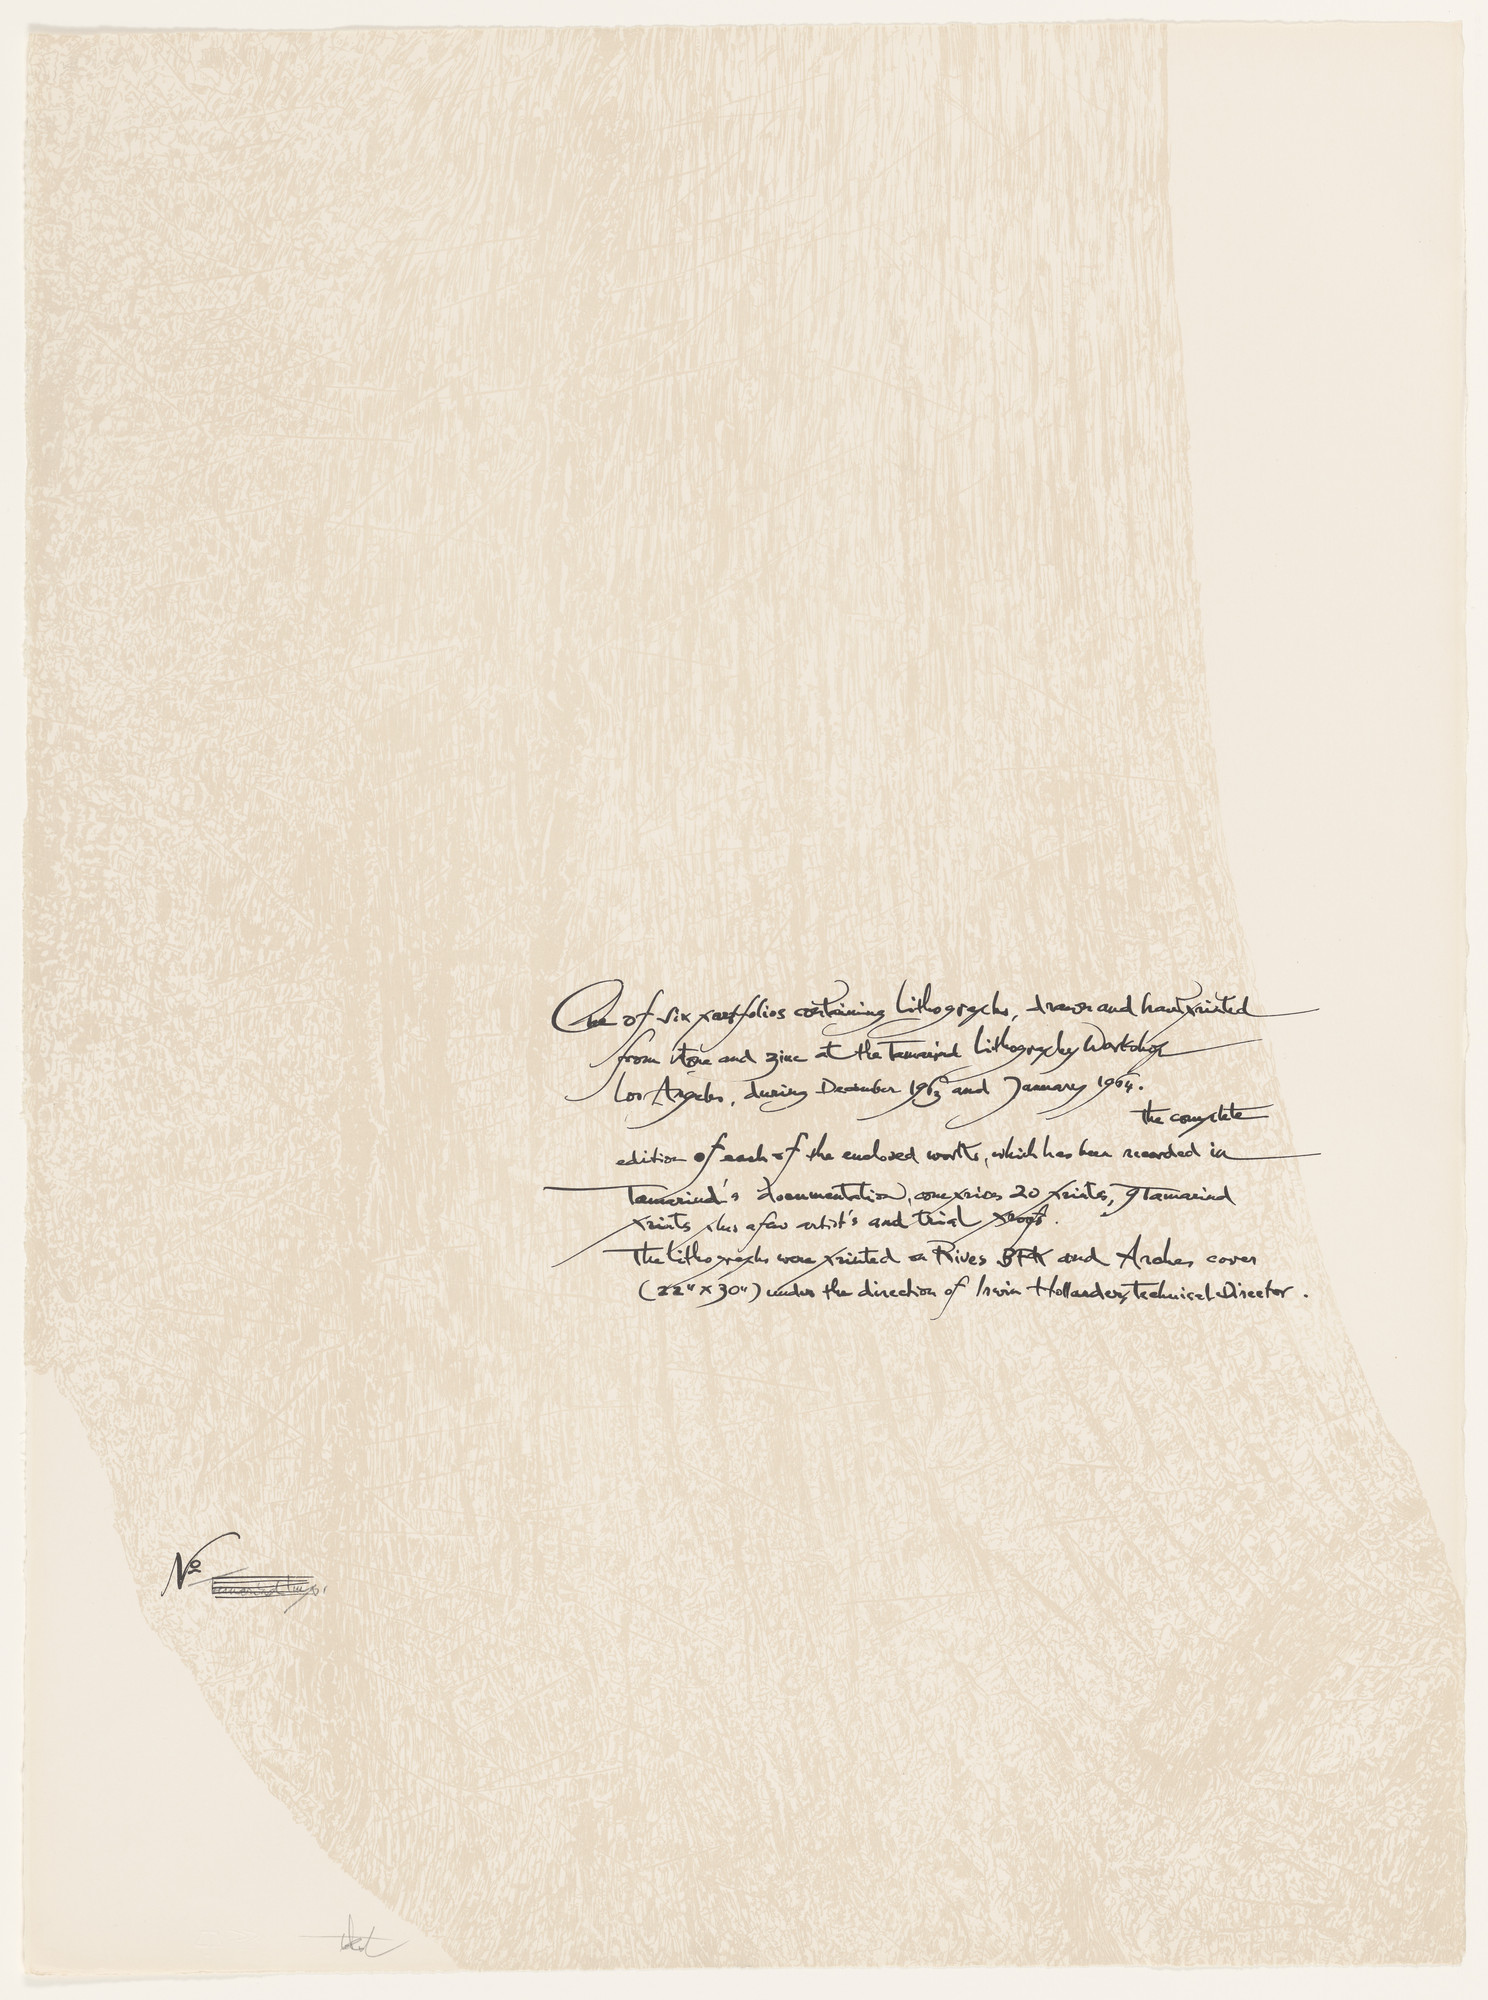 One of six portfolios containing lithographs, drawn and hand printed
from stone and zinc at the Tamarind Lithography Workshop
Los Angeles, during December 1963 and January 1964.
the complete
edition of each of the enclosed works, which has been recorded in
Tamarind's documentation, comprises 20 prints, 9 Tamarind
prints plus a few artist's and trial proofs.
The lithographs were printed on Rives BFK and Arches cover
(22" x 30") under the direction of Irwin Hollander, Technical Director.
Nº